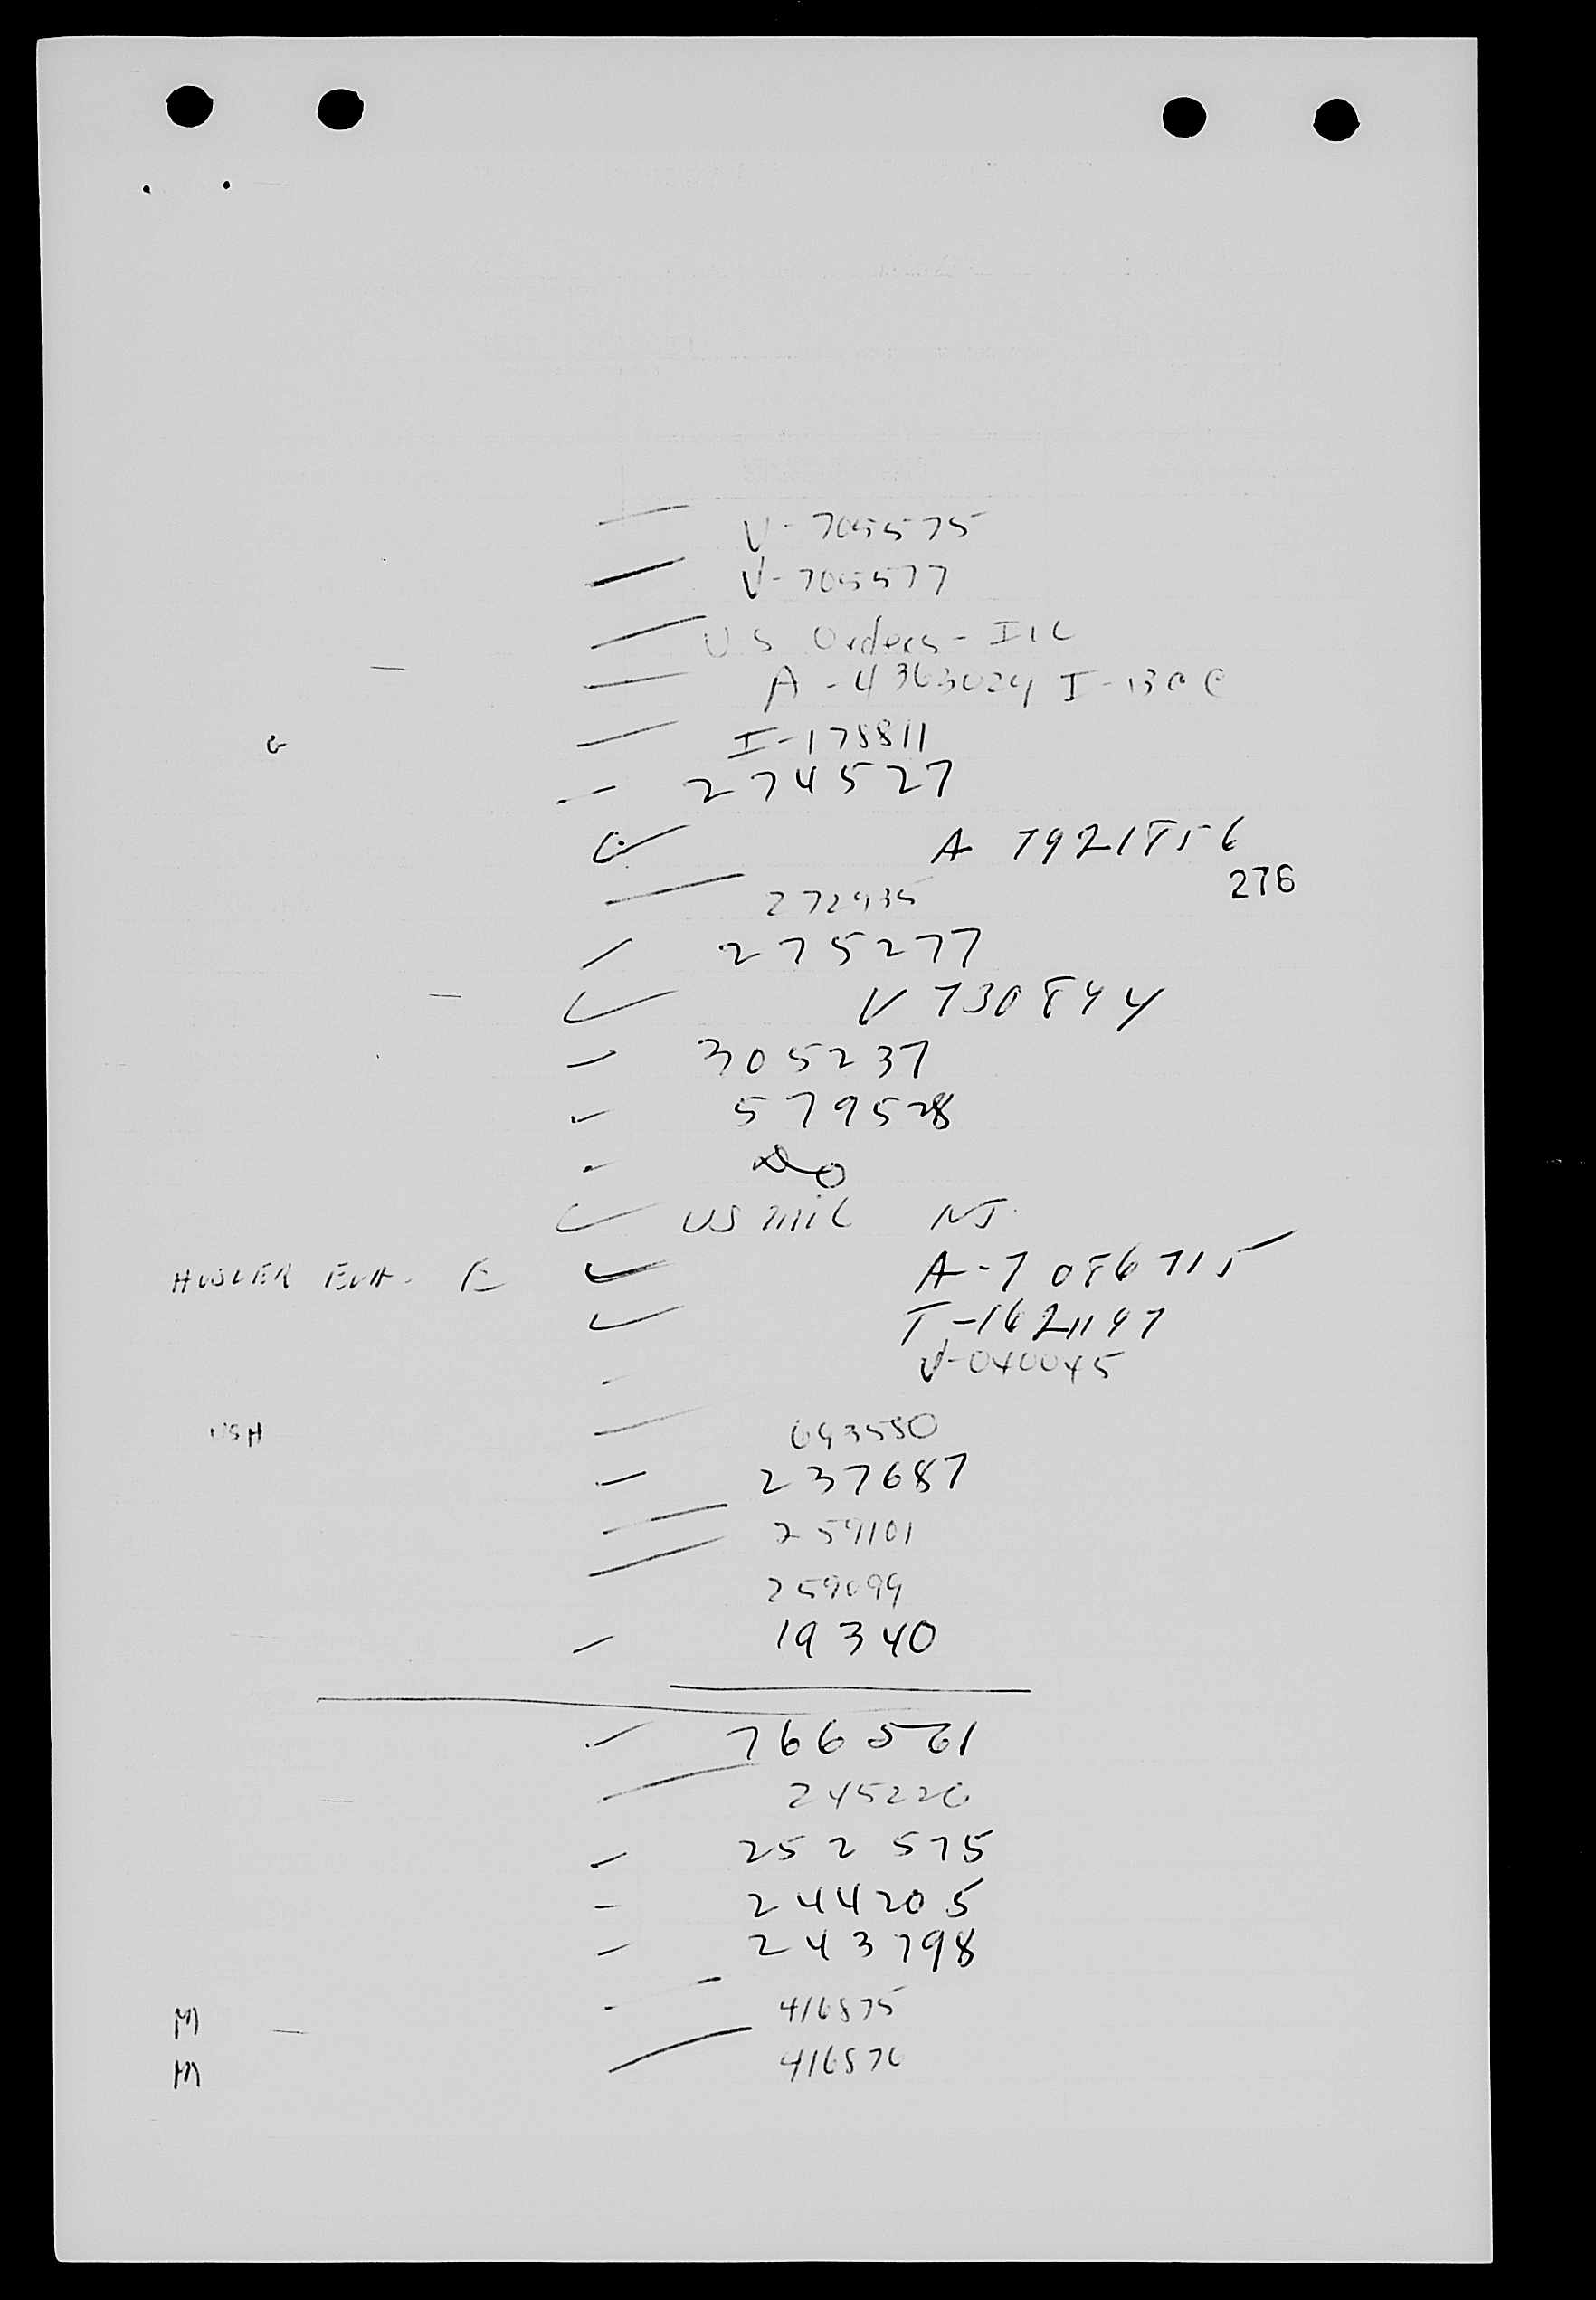 V-705575
V-705577
US Orders - I1C
A-4363024 I-130C
G I-178811
274527
A 7921856
276
272935
275277
V 730844
305237
579528
Do
US mil NJ
A-7086715
T-1621197
V-040045
USH 693580
237687
259101
259099
19340
766561
245220
252575
244205
243798
M 416875
M 416876